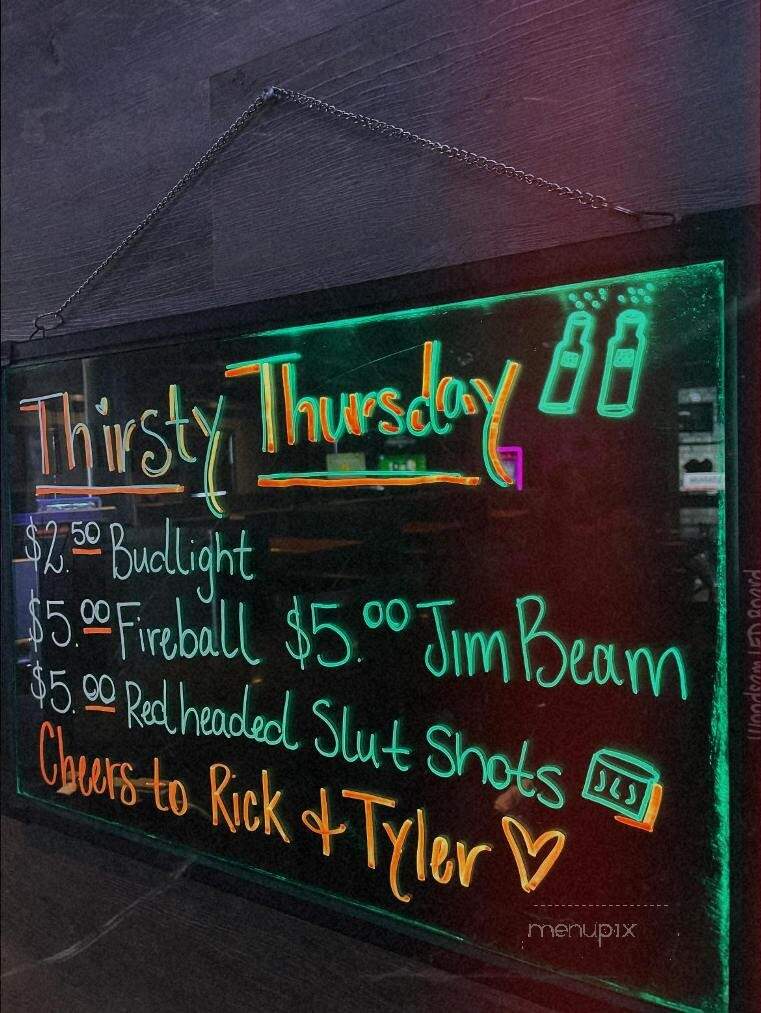 Thirsty Thursday
$2.50 Budlight
$5.00 Fireball $5.00 Jim Beam
$5.00 Redheaded Slut Shots
Cheers to Rick & Tyler
menupix